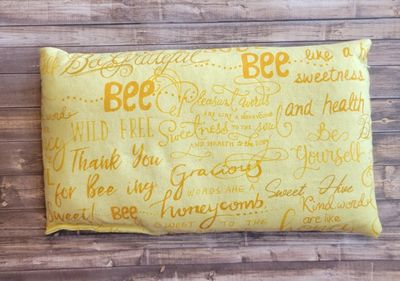 Be Grateful
BEE
like a h
sweetness
BEE
Pleasant words
are like a honeycomb
Sweetness to the soul
and health to the body
and health
WILD FREE
Be
Yourself
Thank You
for Bee ing
Gracious
words are a
honeycomb
Sweet
Hive
Kind word
are like
Sweet!
BEE
sweet to the